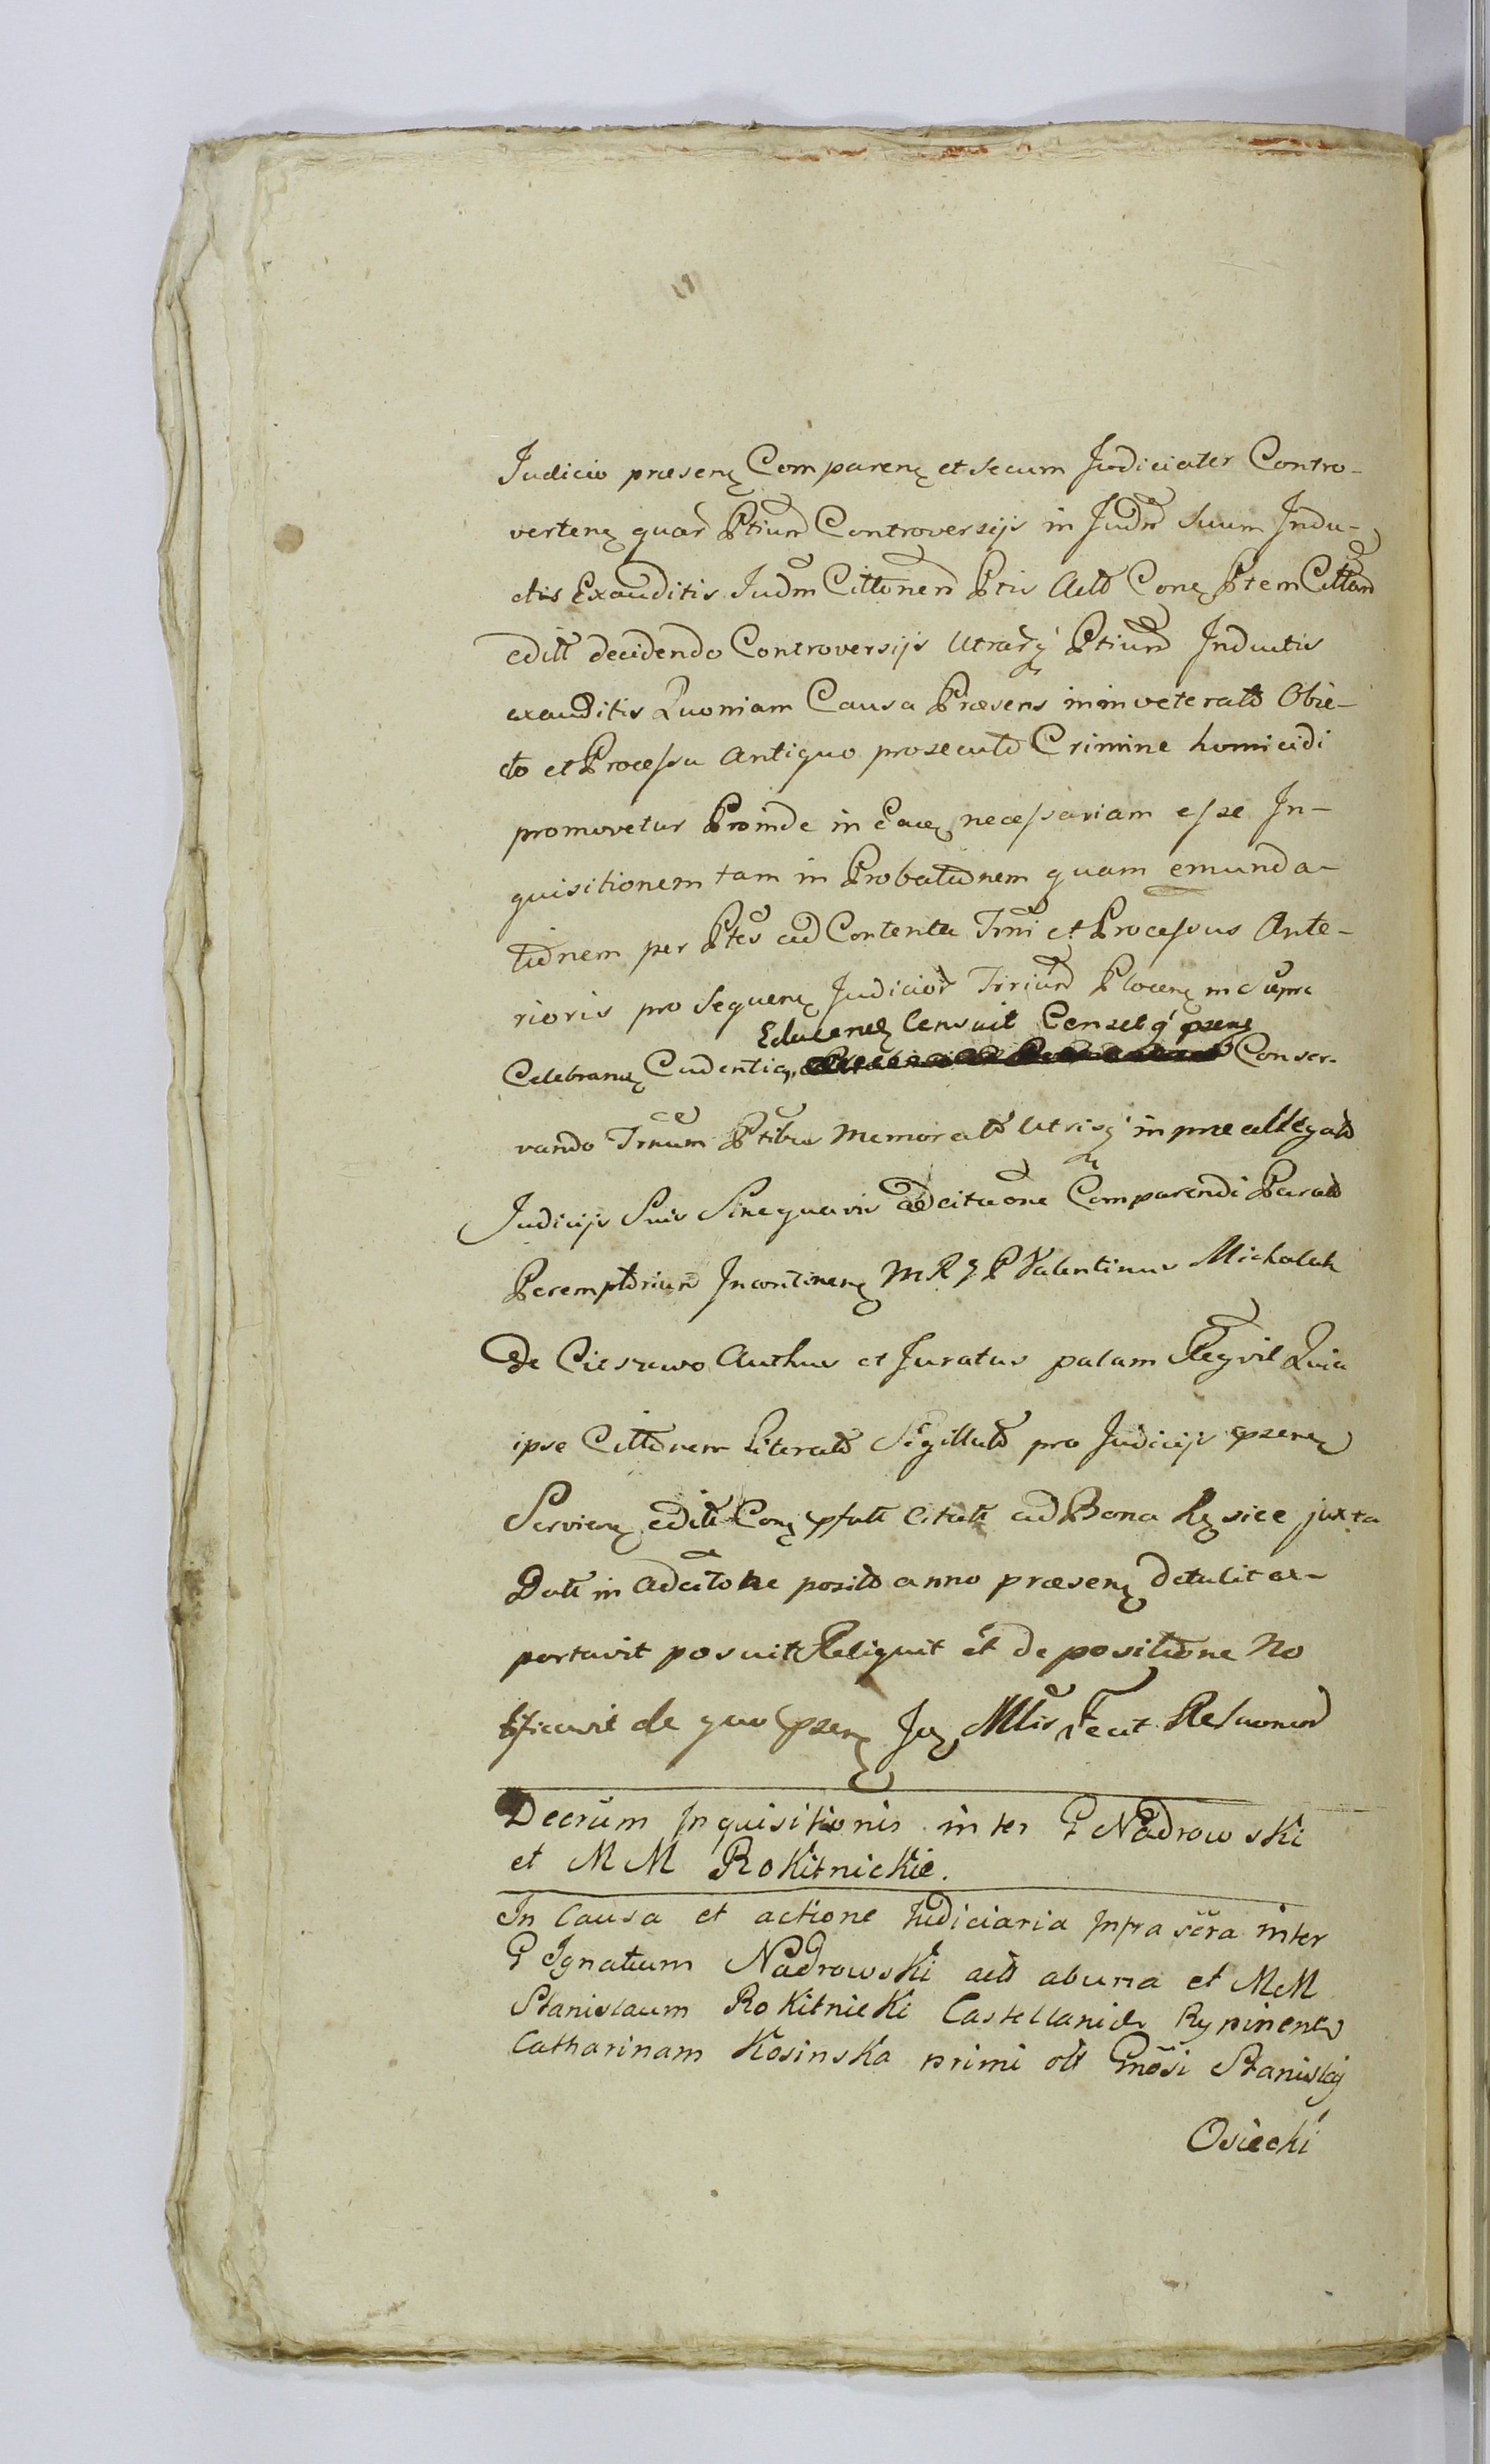 Judicio præsenꝫ Comparenꝫ et Secum Judicialer Contro-
vertenꝫ quar Ptium Controversijs in Judm Suum Indu-
ctis Exauditis Judm Citonem Ptis Acto Conꝫ Ptem Cittam
editt decidendo Controversijs Utrarq Ptium Inductis
exauditis Quoniam Causa Præsens in inveterato Obie-
cto et Processu Antiquo prosecuto Crimine homicidi
promovetur Proinde in Eaꝫ necessariam esse In-
quisitionem tam in Probationem quam emunda-
tionem per Ptes ad Contenta Trni et Processus Ante-
rioris pro Sequenꝫ Judicior Trrium Plocenꝫ in Supra
Educenꝫ Censuit Censetq psenꝫ
Celebranꝫ Cadentia, Conser-
vando Trnum Ptibus Memorato Utrisq in præallegato
Judicijs Suis Sine quavis adcitaone Comparendi Parato
Peremptorium Incontinenꝫ M R P Valentinus Michalak
de Cieszewo Authus et Juratus palam Regvit Quia
ipse Cittonem Literato Sigillato pro Judicijs psenꝫ
Servienꝫ editt Conꝫ psatt Citatt ad Bona juxta
Datt in adcitone posito anno præsenꝫ detulit ap-
portavit posuit Reliquit et de positione No
tificavit de quo psenꝫ Jꝫ Mtis Fecit Relaonem
Decrum Inquisitionis inter G Nadrowski
et M M Rokitnickie.
In Causa et actione Judiciaria Infra scra inter
G Ignatium Nadrowski acto ab una et M M
Stanislaum Rokitnicki Castellanid Rypinens
Catharinam Kosinska primi ott Gnosi Stanislaj
Osiecki